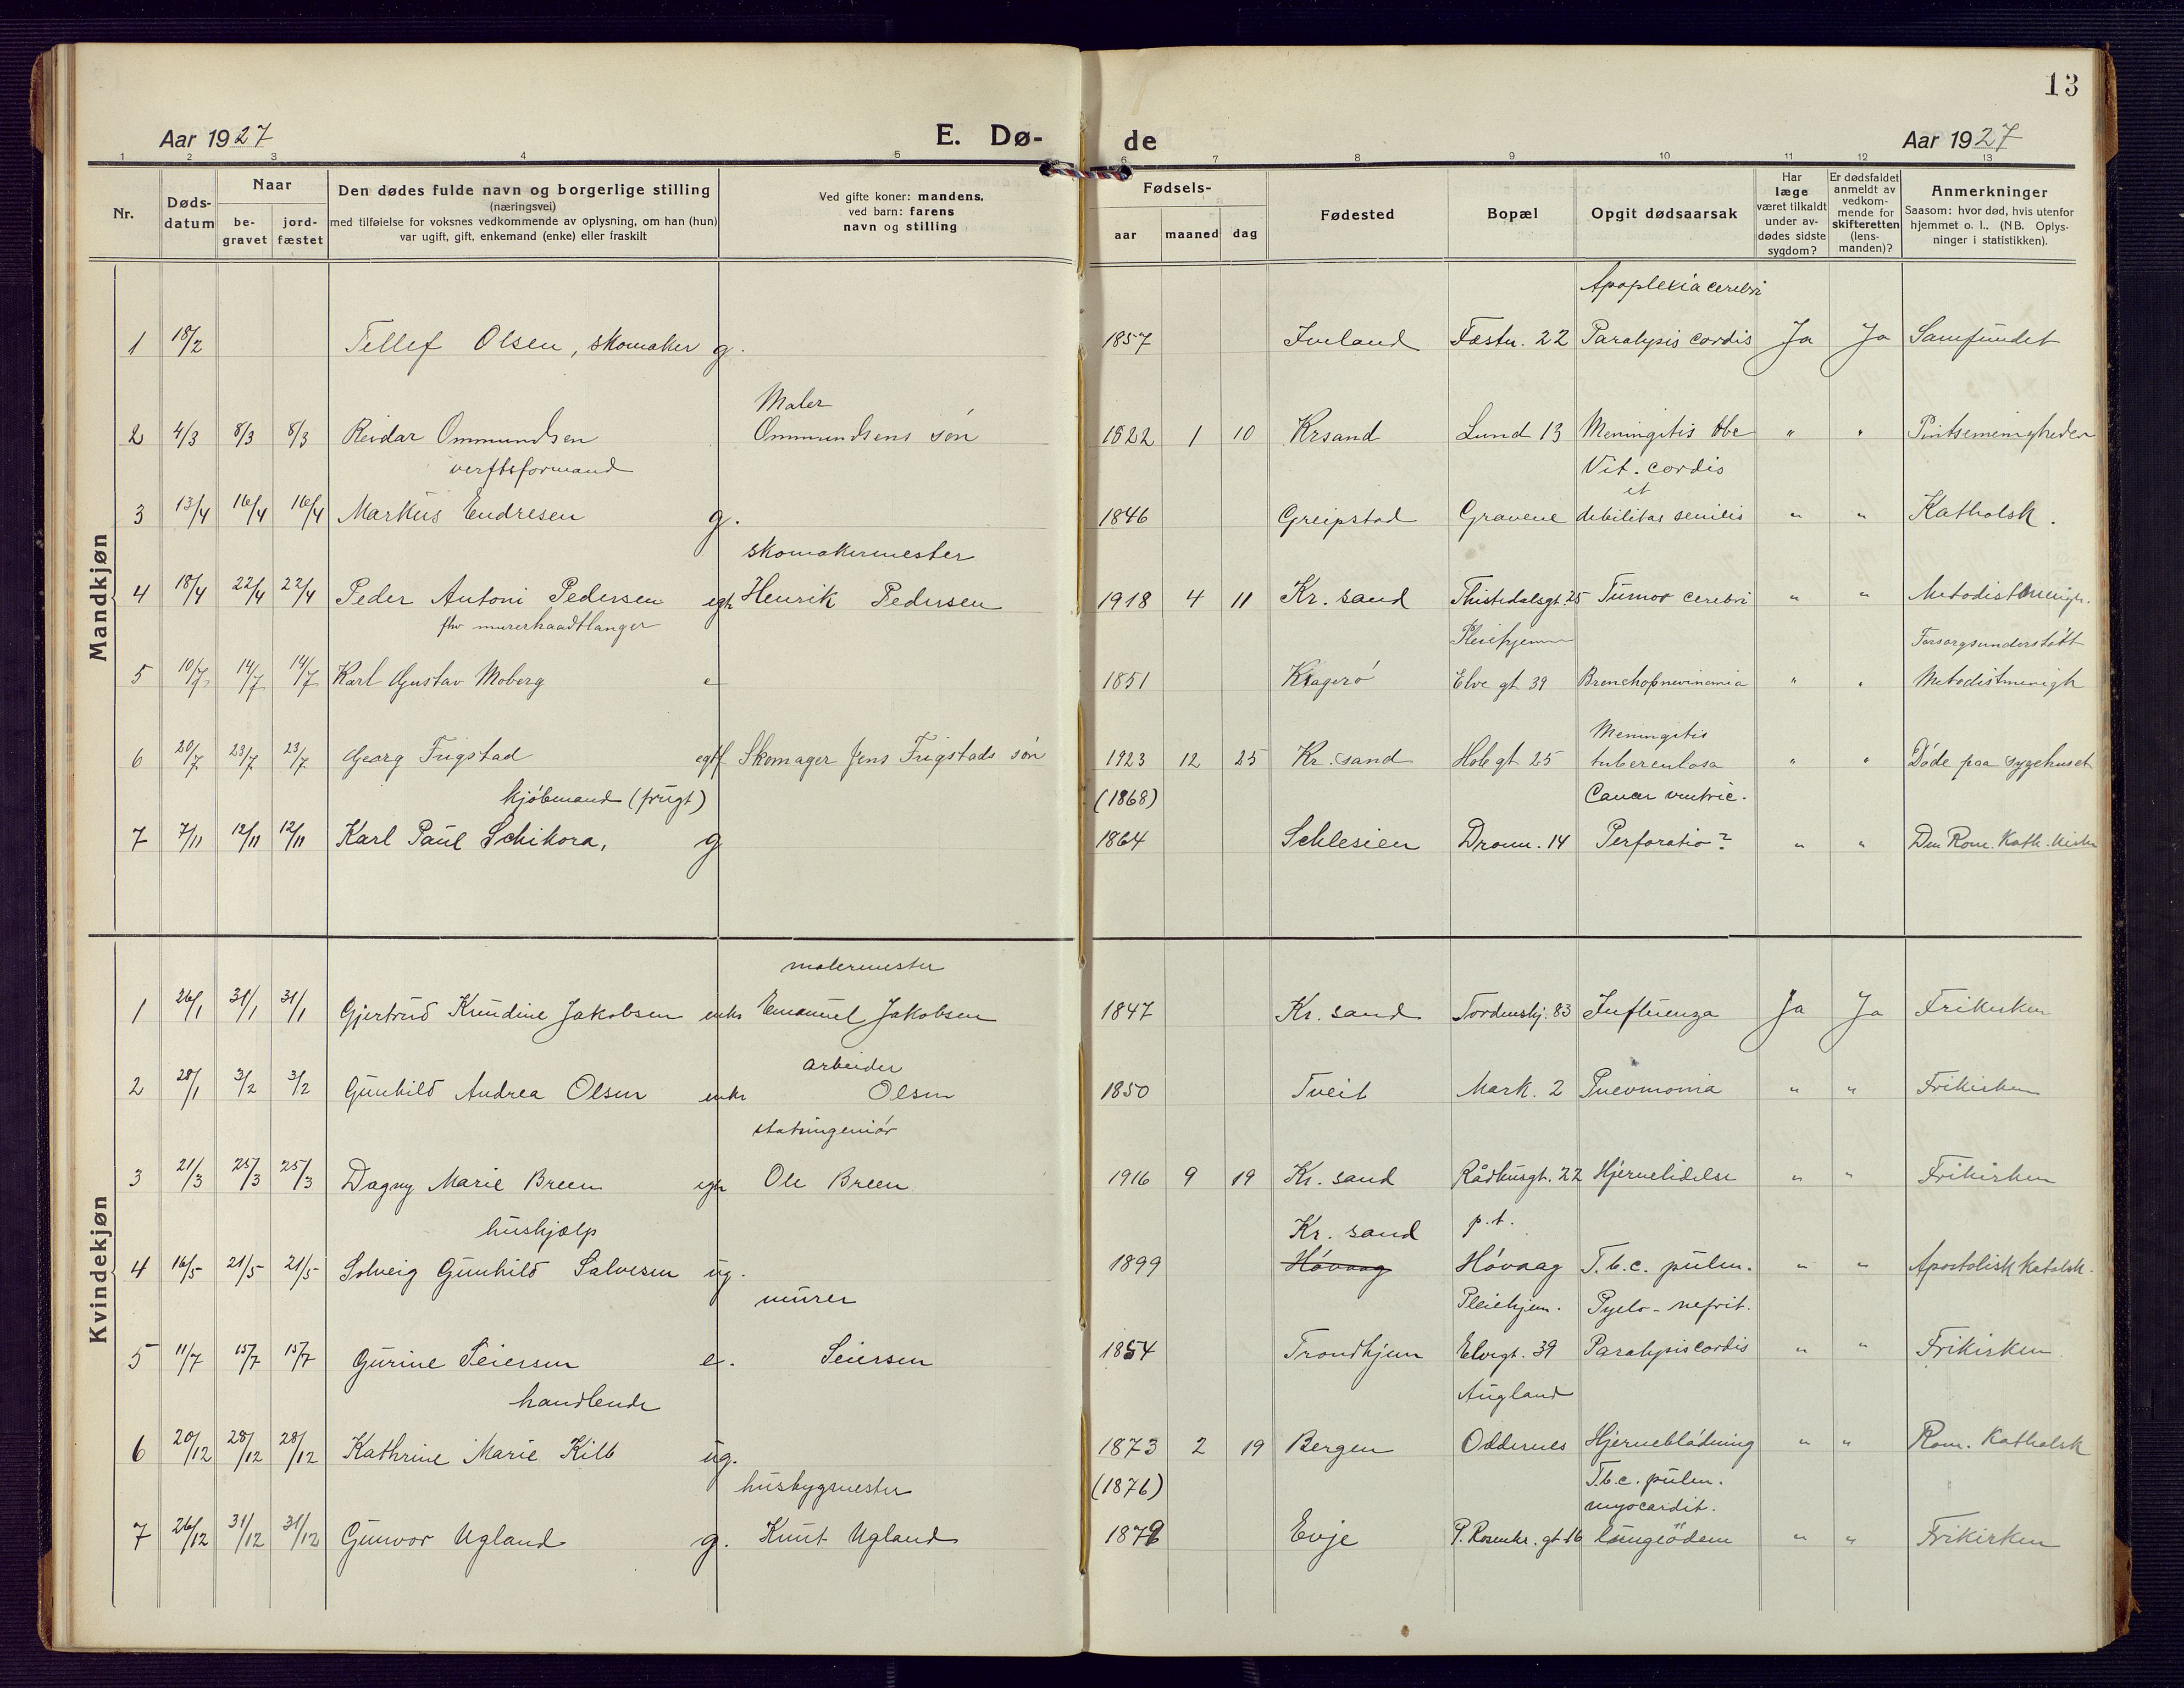 13
Aar 1927 E. Dø- de Aar 1927
1 2 3 4 5 6 7 8 9 10 11 12 13
Nr. Døds-datum Naar be-gravet jord-fæstet Den dødes fulde navn og borgerlige stilling (næringsvei) med tilføielse for voksnes vedkommende av oplysning, om han (hun) var ugift, gift, enkemand (enke) eller fraskilt Ved gifte koner: mandens, ved barn: farens navn og stilling Fødsels- aar maaned dag Fødested Bopæl Opgit dødsaarsak Har læge været tilkaldt under av-dødes sidste sygdom? Er dødsfaldet anmeldt av vedkom-mende for skifteretten (lens-manden)? Anmerkninger Saasom: hvor død, hvis utenfor hjemmet o. l.. (NB. Oplys-ninger i statistikken).
Mandkjøn
Apoplexia cerebri
1 18/2 Tellef Olsen, skomaker g. 1857 Iveland Festn. 22 Paralysis cordis Ja Ja Samfundet
Maler
2 4/3 8/3 8/3 Reidar Ommundsen Ommundsens søn 1922 1 10 Krsand Lund 13 Meningitis tbc " " Pintsemenigheden
verftsformand Vit. cordis
et
3 13/4 16/4 16/4 Markus Endresen g. 1846 Greipstad Gravene debilitas senilis " " Katholsk.
skomakermester
4 18/4 22/4 22/4 Peder Antoni Pedersen egte Henrik Pedersen 1918 4 11 Kr. sand Thistedalsgt. 25 Tumor cerebri " " Metodistmenigh.
fhv murerhaandtlanger Pleiehjemm Forsorgsunderstøtt
5 10/7 14/7 14/7 Karl Gustav Moberg e 1851 Kragerø Elve gt 39 Bronchopnevmonia " " Metodistmenigh
Meningitis
6 20/7 23/7 23/7 Georg Frigstad egtf Skomager Jens Frigstads søn 1923 12 25 Kr. sand Holb gt 25 tuberculosa " " Døde paa sygehuset
kjøbmand (frugt) (1868) Cancer ventric.
7 7/11 12/11 12/11 Karl Paul Schikora, g 1864 Schlesien Dronn. 14 Perforatio? " " Den Rom. Kath. Kirke
Kvindekjøn
malermester
1 26/1 31/1 31/1 Gjertrud Knudine Jakobsen enke Emanuel Jakobsen 1847 Kr. sand Tordenskj. 83 Influenza Ja Ja Frikirken
arbeider
2 28/1 3/2 3/2 Gunhild Andrea Olsen enke Olsen 1850 Tveit Mark. 2 Pnevmonia " " Frikirken
statsingeniør
3 21/3 25/3 25/3 Dagny Marie Breen egte Ole Breen 1916 9 19 Kr. sand Rådhusgt. 22 Hjernelidelse " " Frikirken
hushjælp Kr. sand p.t.
4 16/5 21/5 21/5 Solveig Gunhild Salvesen ug. 1899 Høvaag Høvaag T.b.c. pulm. " " Apostolisk katolsk.
murer Pleiehjem. Pyelo-nefrit.
5 11/7 15/7 15/7 Gurine Seiersen e. Seiersen 1854 Trondhjem Elvegt. 39 Paralysis cordis " " Frikirken
handlende Augland
6 20/12 28/12 28/12 Kathrine Marie Kilb ug. 1873 2 19 Bergen Oddernes Hjerneblødning " " Rom. Katholsk
husbygmester (1876) T.b.c. pulm.
myocardit.
7 26/12 31/12 31/12 Gunvor Ugland g. Knut Ugland 1879 Evje P. Rosenkr. gt 16 lungeødem " " Frikirken